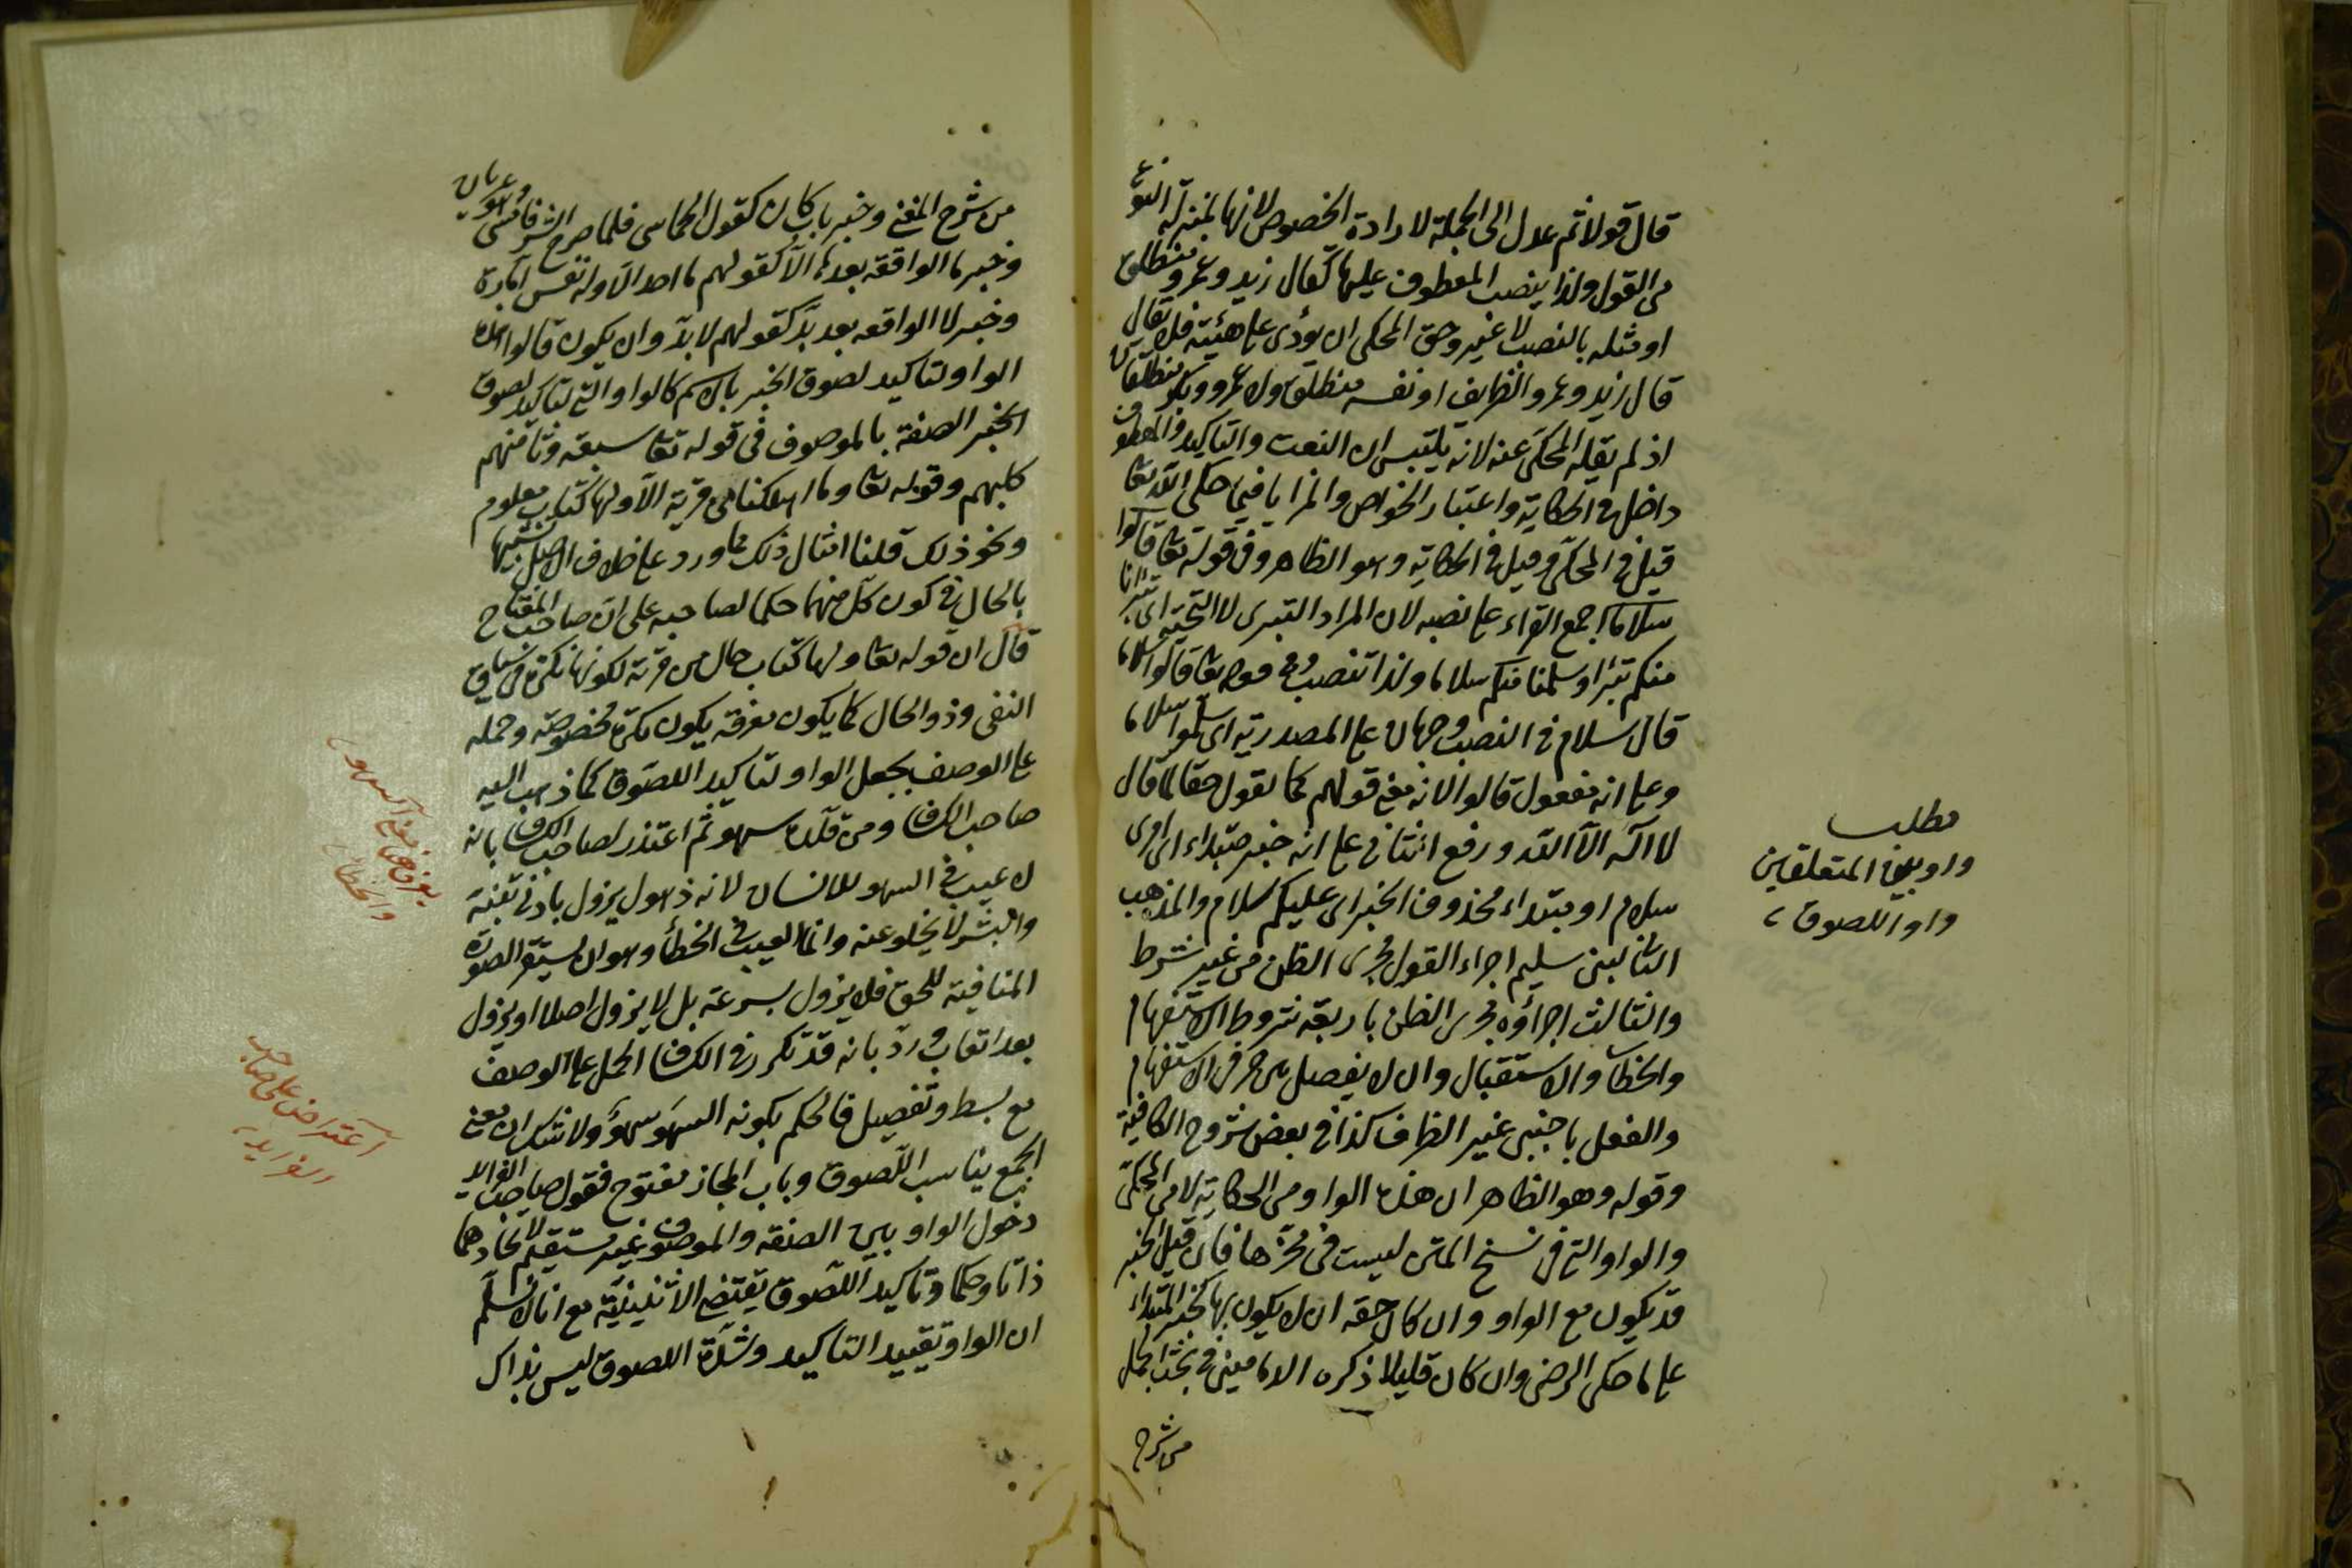 قال قولا ثم عدل الى الجملة لارادة الخصوص لانها بمنزلة النوع
من القول ولذا ينصب المعطوف عليها كقال زيد وعمرو منطلق
او مثله بالنصب لا غير وحق المحكى ان يؤدى على هيئته فلا يقال
قال زيد وعمرو الظريف او نفسه منطلق ولا عمرو وبكر منطلقان
اذ لم يقله المحكى عنه لانه يلتبس ان النعت والتاكيد والمعطوف
داخل فى الحكاية واعتبار الخواص والمزايا فيما حكى الله تعا
قيل فى المحكى وقيل فى الحكاية وهو الظاهر وفى قوله تعا قالوا
سلاما اجمع القراء على نصبه لان المراد التبرى لا التحية اى تبرانا
منكم تبرا وسلمنا منكم سلاما ولذا تنصب وفى قوله تعا قالوا سلاما
قال سلام فى النصب وجهان على المصدرية اى سلموا سلاما
وعلى انه مفعول قالوا لانه معنى قولهم كما تقول حقا لمن قال
لا اله الا الله ورفع الثانى على انه خبر مبتداء اى امرى
سلام او مبتداء محذوف الخبر اى عليكم سلام والمذهب
الثانى لبنى سليم اجراء القول مجرى الظن من غير شرط
والثالث اجراؤه مجرى الظن باربعة شروط الاستفهام
والخطاب والاستقبال وان لا يفصل بين حرف الاستفهام
والفعل باجنبى غير الظرف كذا فى بعض شروح الكافية
وقوله وهو الظاهر ان هذه الواو من الحكاية لا من المحكى
والواو التى فى نسخ المتن ليست فى محزها فان قيل الخبر
قد يكون مع الواو وان كان حقه ان لا يكون بها كخبر المبتداء
على ما حكى الرضى وان كان قليلا ذكره الدمامينى فى بحث الجمل
من شرح
مطلب
واو بين المتعلقين
واو اللصوق
من شرح المغنى وخبر باب كان كقول الحماسى فلما صرح الشر فامسى وهو عريان
وخبر ما الواقعة بعد الا كقولهم ما احد الا وله نفس امارة
وخبر لا الواقعة بعد بد كقولهم لا بد وان يكون قالوا هذه
الواو لتاكيد لصوق الخبر بالاسم كالواو التى لتاكيد لصوق
الخبر الصفة بالموصوف فى قوله تعا سبعة وثامنهم
كلبهم وقوله تعا وما اهلكنا من قرية الا ولها كتاب معلوم
ونحو ذلك قلنا امثال ذلك مما ورد على خلاف الاصل تشبيها
بالحال فى كون كل منهما حكما لصاحبه على ان صاحب المفتاح
قال ان قوله تعا ولها كتاب حال من قرية لكونها نكرة فى سياق
النفى وذو الحال كما يكون معرفة يكون نكرة مخصوصة وحمله
على الوصف بجعل الواو لتاكيد اللصوق كما ذهب اليه
صاحب الكشاف ومن قلده سهو ثم اعتذر لصاحب الكشاف بانه
لا عيب فى السهو للانسان لانه ذهول يزول بادنى تنبه
والبشر لا يخلو عنه وانما العيب فى الخطأ وهو ان يستقر الصورة
المنافية للحق فلا يزول بسرعة بل لا يزول اصلا او يزول
بعد اتعاب ورد بانه قد تكرر فى الكشاف الحمل على الوصف
مع بسط وتفصيل فالحكم بكونه السهو سهو ولا شك ان معنى
الجمع يناسب اللصوق وباب المجاز مفتوح فقول صاحب الفرايد
دخول الواو بين الصفة والموصوف غير مستقيم لاتحادهما
ذاتا وحكما وتاكيد اللصوق يقتضى الاثنينية مع انا لا نسلم
ان الواو تفييد التاكيد وشدة اللصوق ليس بذاك
معنى السهو
والخطأ
اعتراض على صاحب
الفرايد